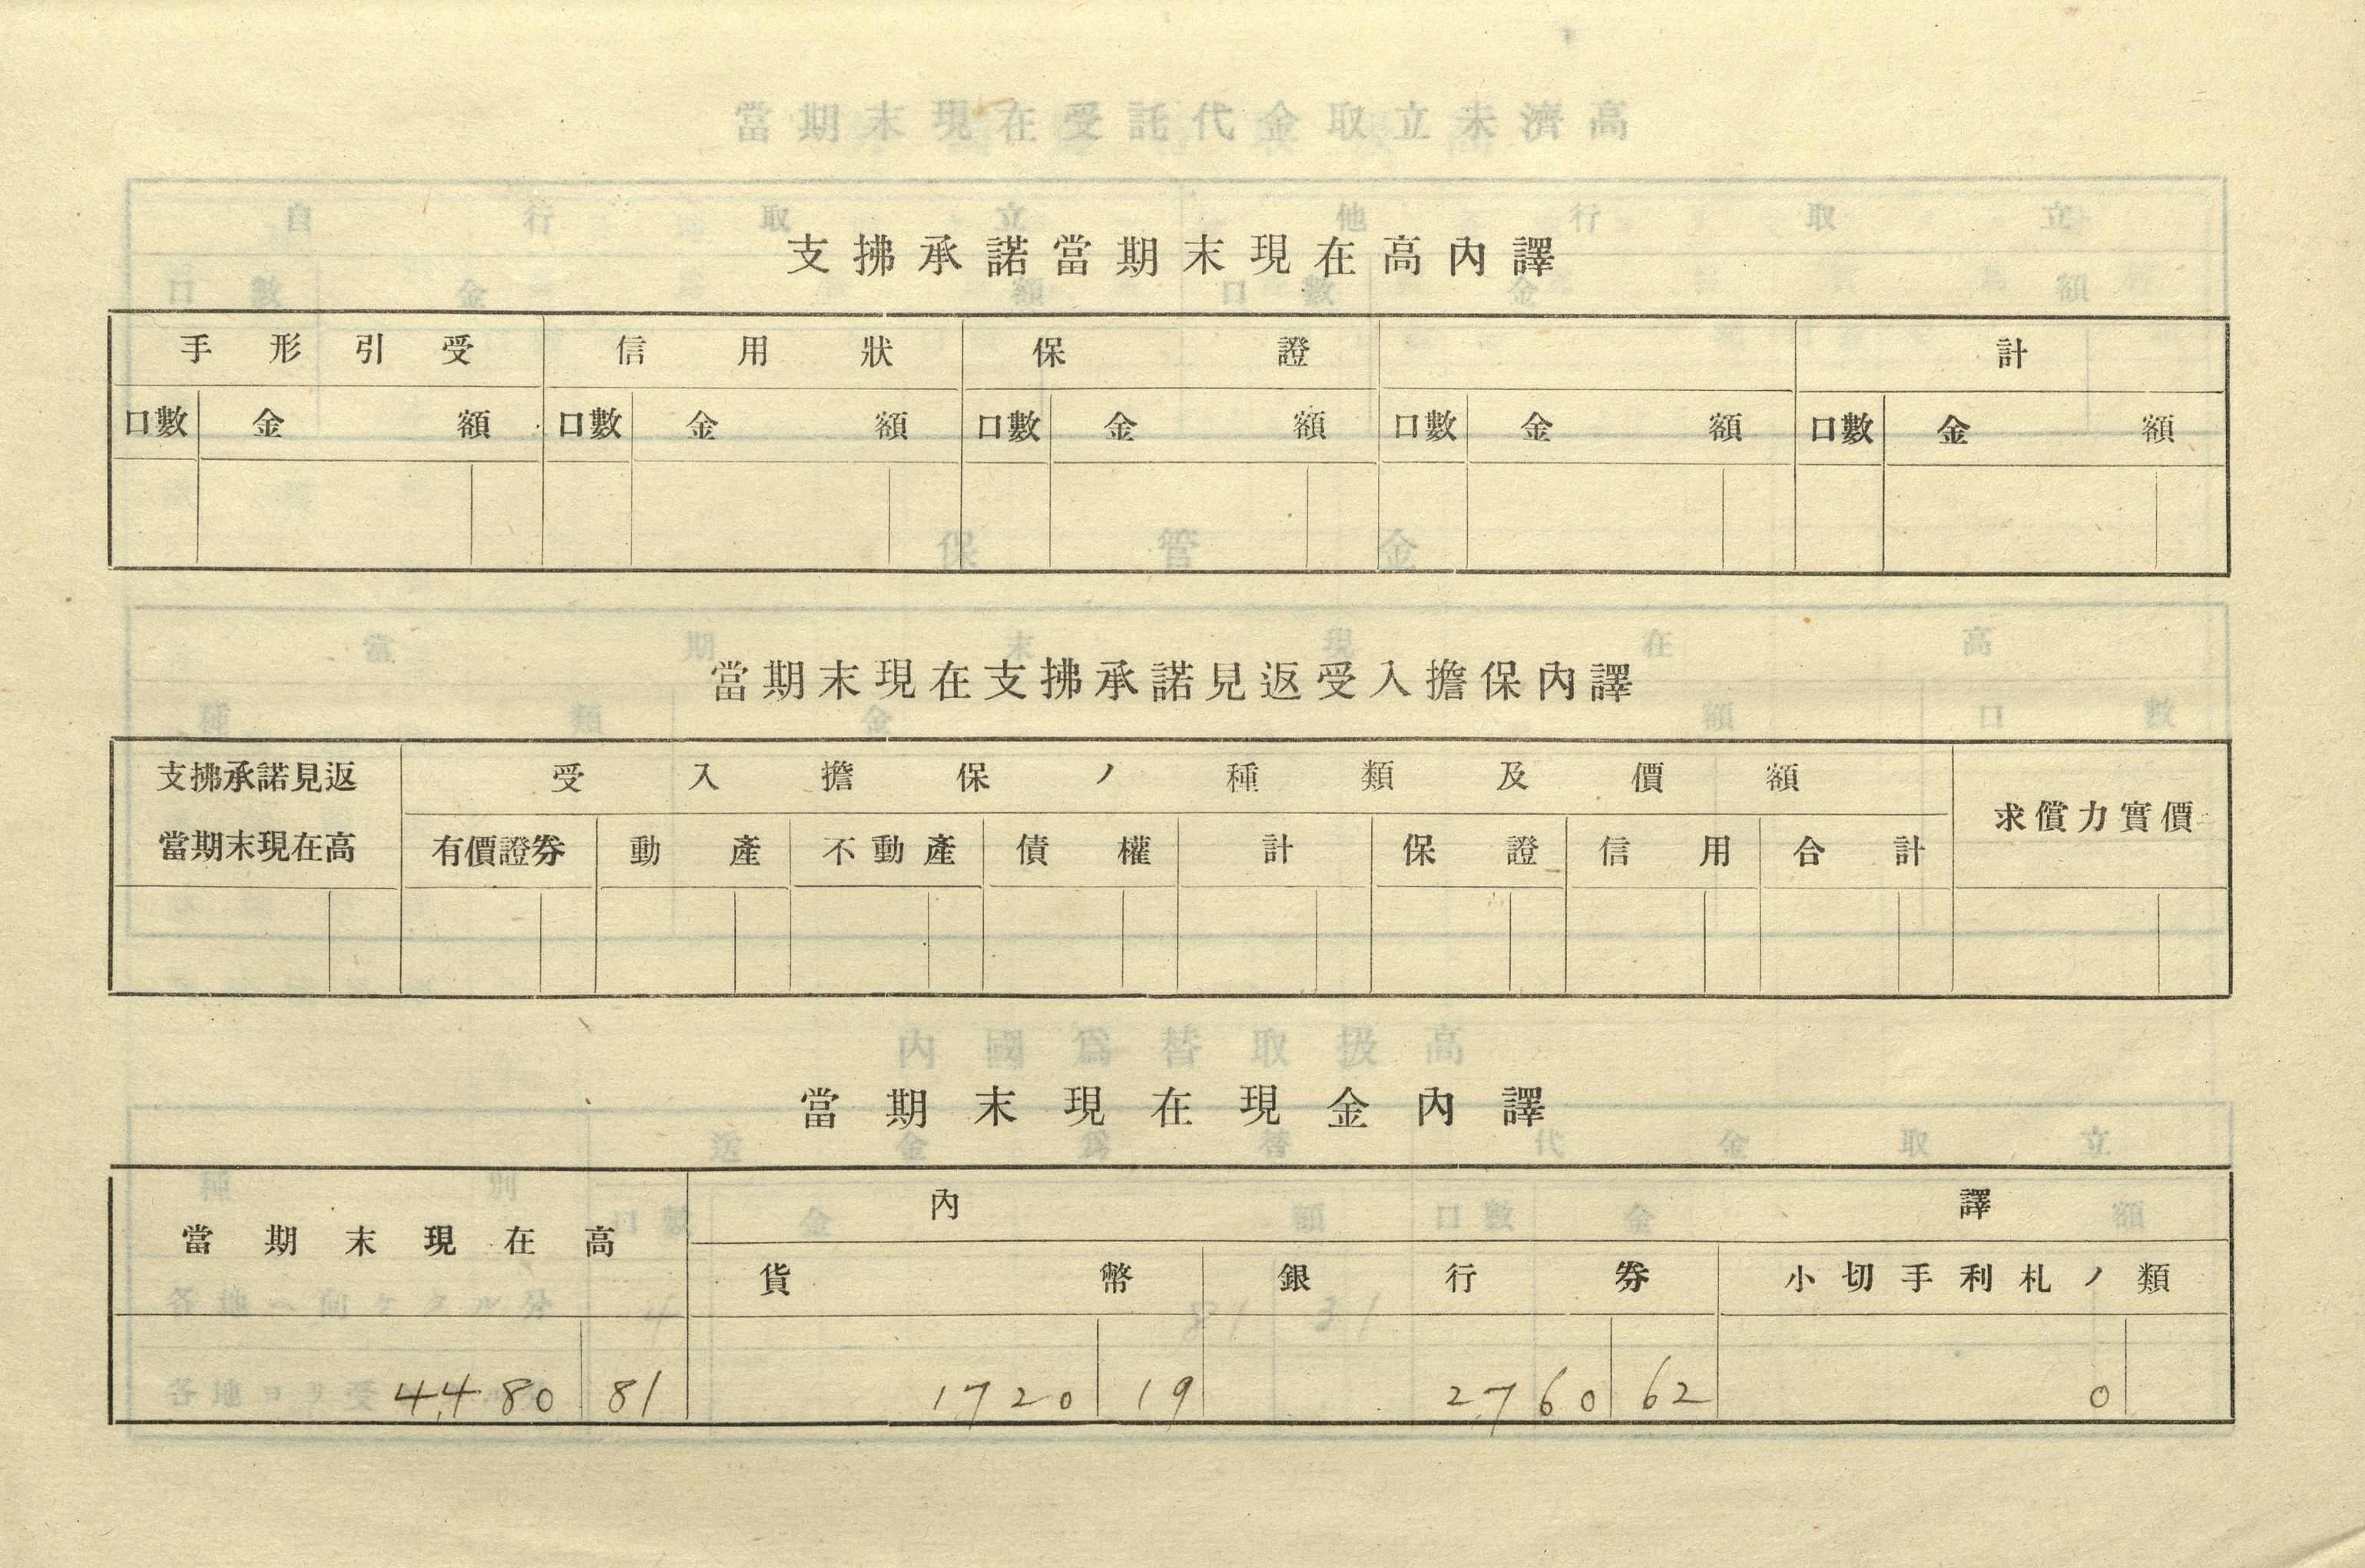 支拂承諾當期末現在高內譯
手形引受 信用狀 保證 計
口數 金額 口數 金額 口數 金額 口數 金額 口數 金額
當期末現在支拂承諾見返受入擔保內譯
支拂承諾見返 受入擔保ノ種類及價額 求償力實價
當期末現在高 有價證券 動產 不動產 債權 計 保證 信用 合計
當期末現在現金內譯
當期末現在高 內譯
貨幣 銀行券 小切手利札ノ類
4,480 81 1,720 19 2,760 62 0